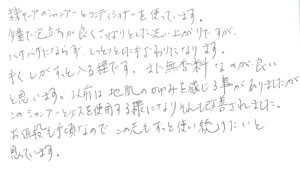 持ナーブのシャンプーとコンディショナーを使っています。
少量で泡立ちが良くさっぱりとした洗い上がりですが、
パサパサにならず、しっとりとした手ざわりになります。
手ぐしがすっと入る程です。また無香料なのが良い
と思います。以前は地肌のかゆみを感じる事がありましたが
このシャンプーとリンスを使用する様になりそれも改善されました。
お値段も手頃なので、この先もずっと使い続けたいと
思っています。